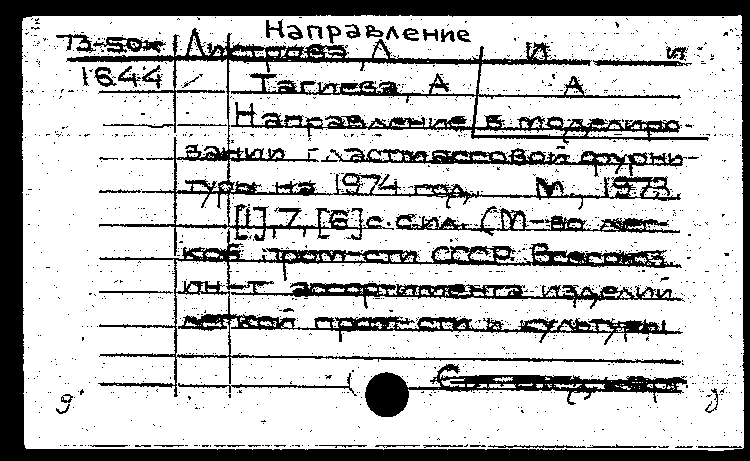 Направление
73-50к Листрова, Л И и
1644 Тагиева, А А
Направление в моделиро-
вании пластмассовой фурни-
туры на 1974 год. М., 1973
[1], 7, [6] с. с ил. (М-во лег-
кой пром-сти СССР. Всесоюз.
ин-т ассортимента изделий
легкой пром-сти и культуры